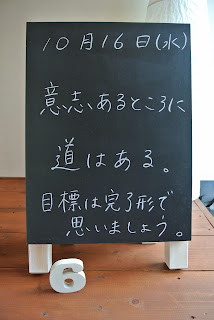 10月16日(水)
意志あるところに
道はある。
目標は完了形で
思いましょう。
6